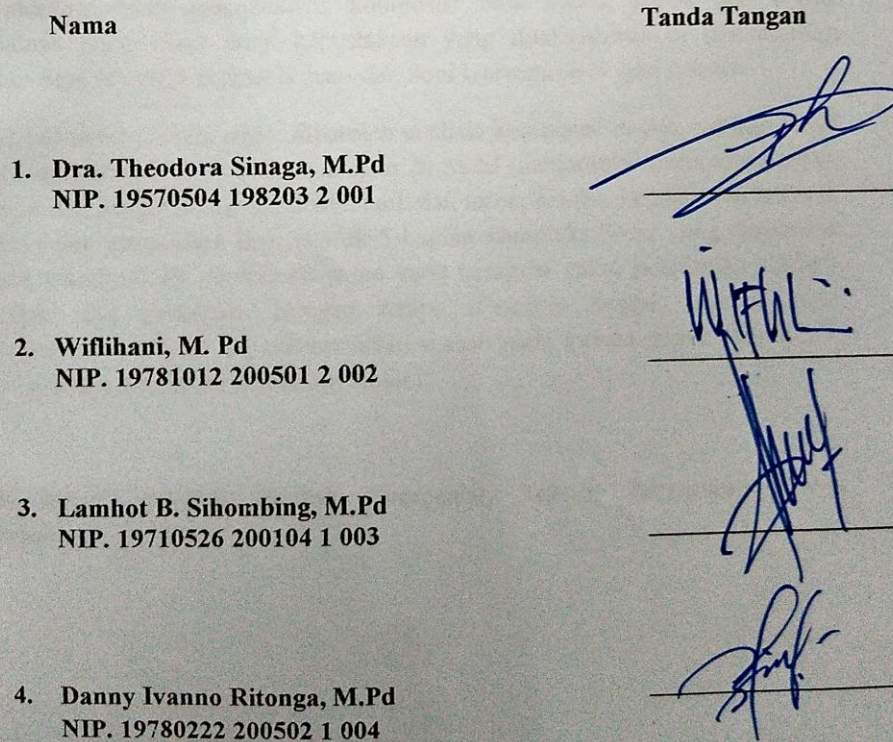 Nama
Tanda Tangan
1. Dra. Theodora Sinaga, M.Pd
NIP. 19570504 198203 2 001
2. Wiflihani, M. Pd
NIP. 19781012 200501 2 002
3. Lamhot B. Sihombing, M.Pd
NIP. 19710526 200104 1 003
4. Danny Ivanno Ritonga, M.Pd
NIP. 19780222 200502 1 004